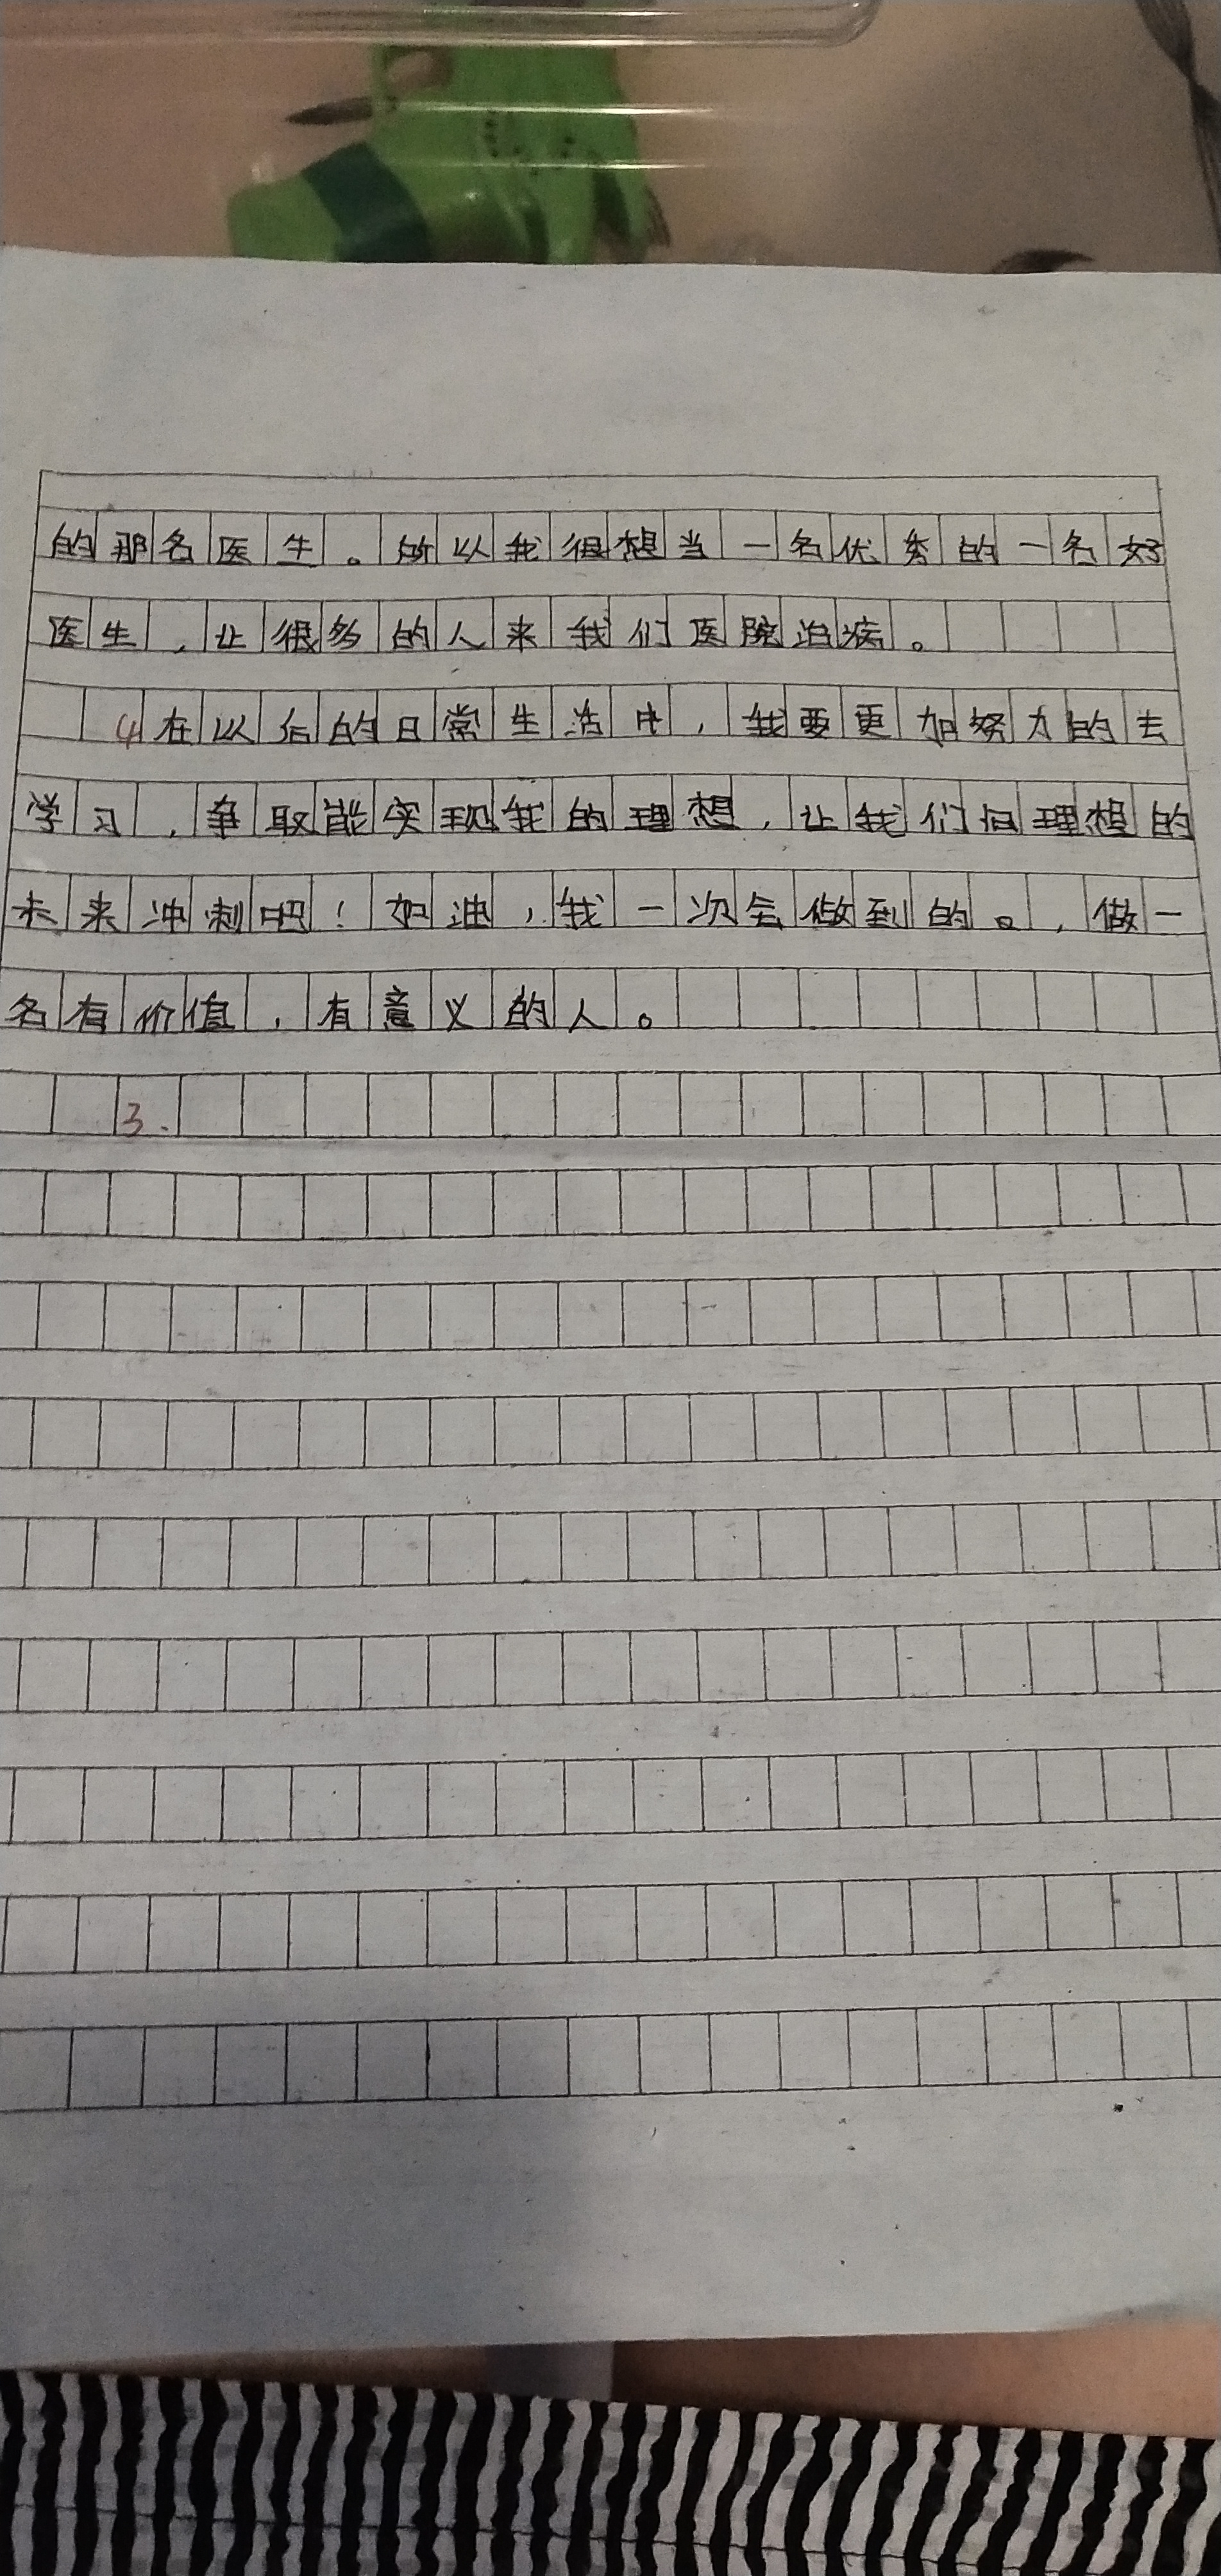 的那名医生。所以我很想当一名优秀的一名好
医生,让很多的人来我们医院治病。
4在以后的日常生活中,我要更加努力的去
学习,争取能实现我的理想,让我们向理想的
未来冲刺吧!加油,我一次会做到的。,做一
名有价值,有意义的人。
3.